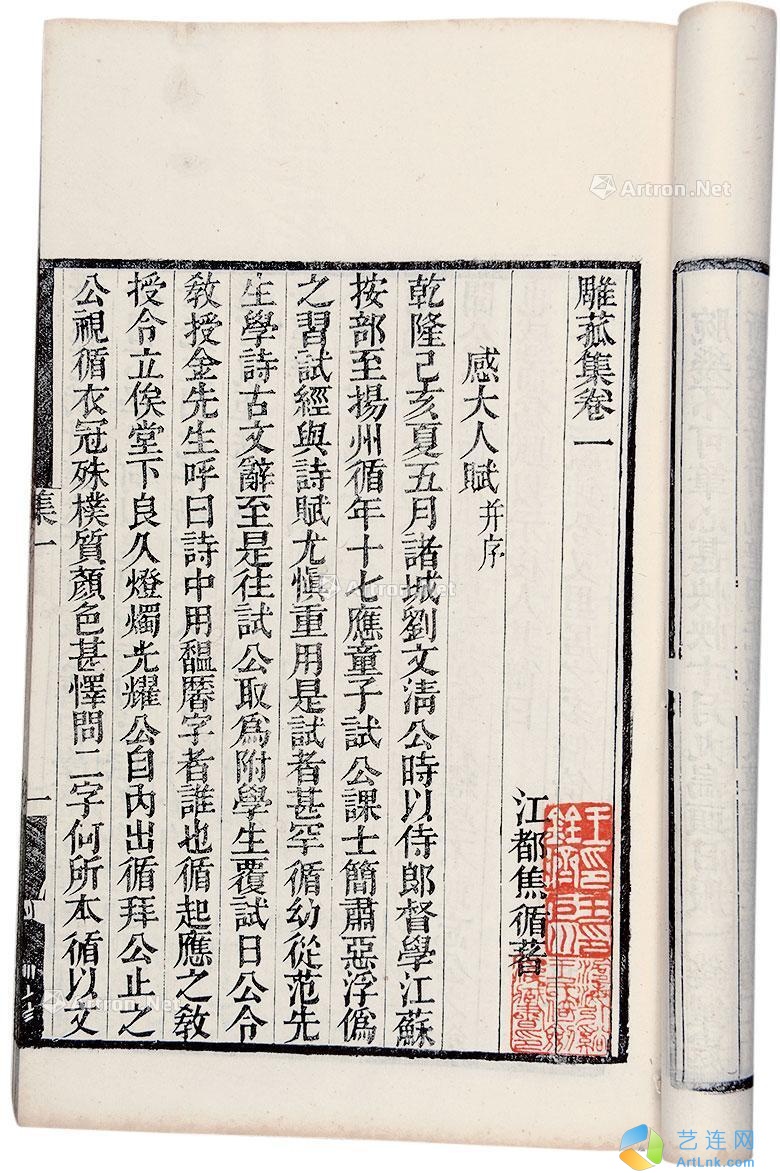 雕菰集卷一
江都焦循著
感大人賦 并序
乾隆己亥夏五月諸城劉文清公時以侍郎督學江蘇
按部至揚州循年十七應童子試公課士簡肅惡浮僞
之習試經與詩賦尤愼重用是試者甚罕循幼從范先
生學詩古文辭至是往試公取爲附學生覆試日公令
敎授金先生呼曰詩中用馧䭯字者誰也循起應之敎
授令立俟堂下良久燈燭光耀公自內出循拜公止之
公視循衣冠殊樸質顏色甚懌問二字何所本循以文
集一
一
Artron.Net
Artron.Net
艺连网
ArtLnk.com